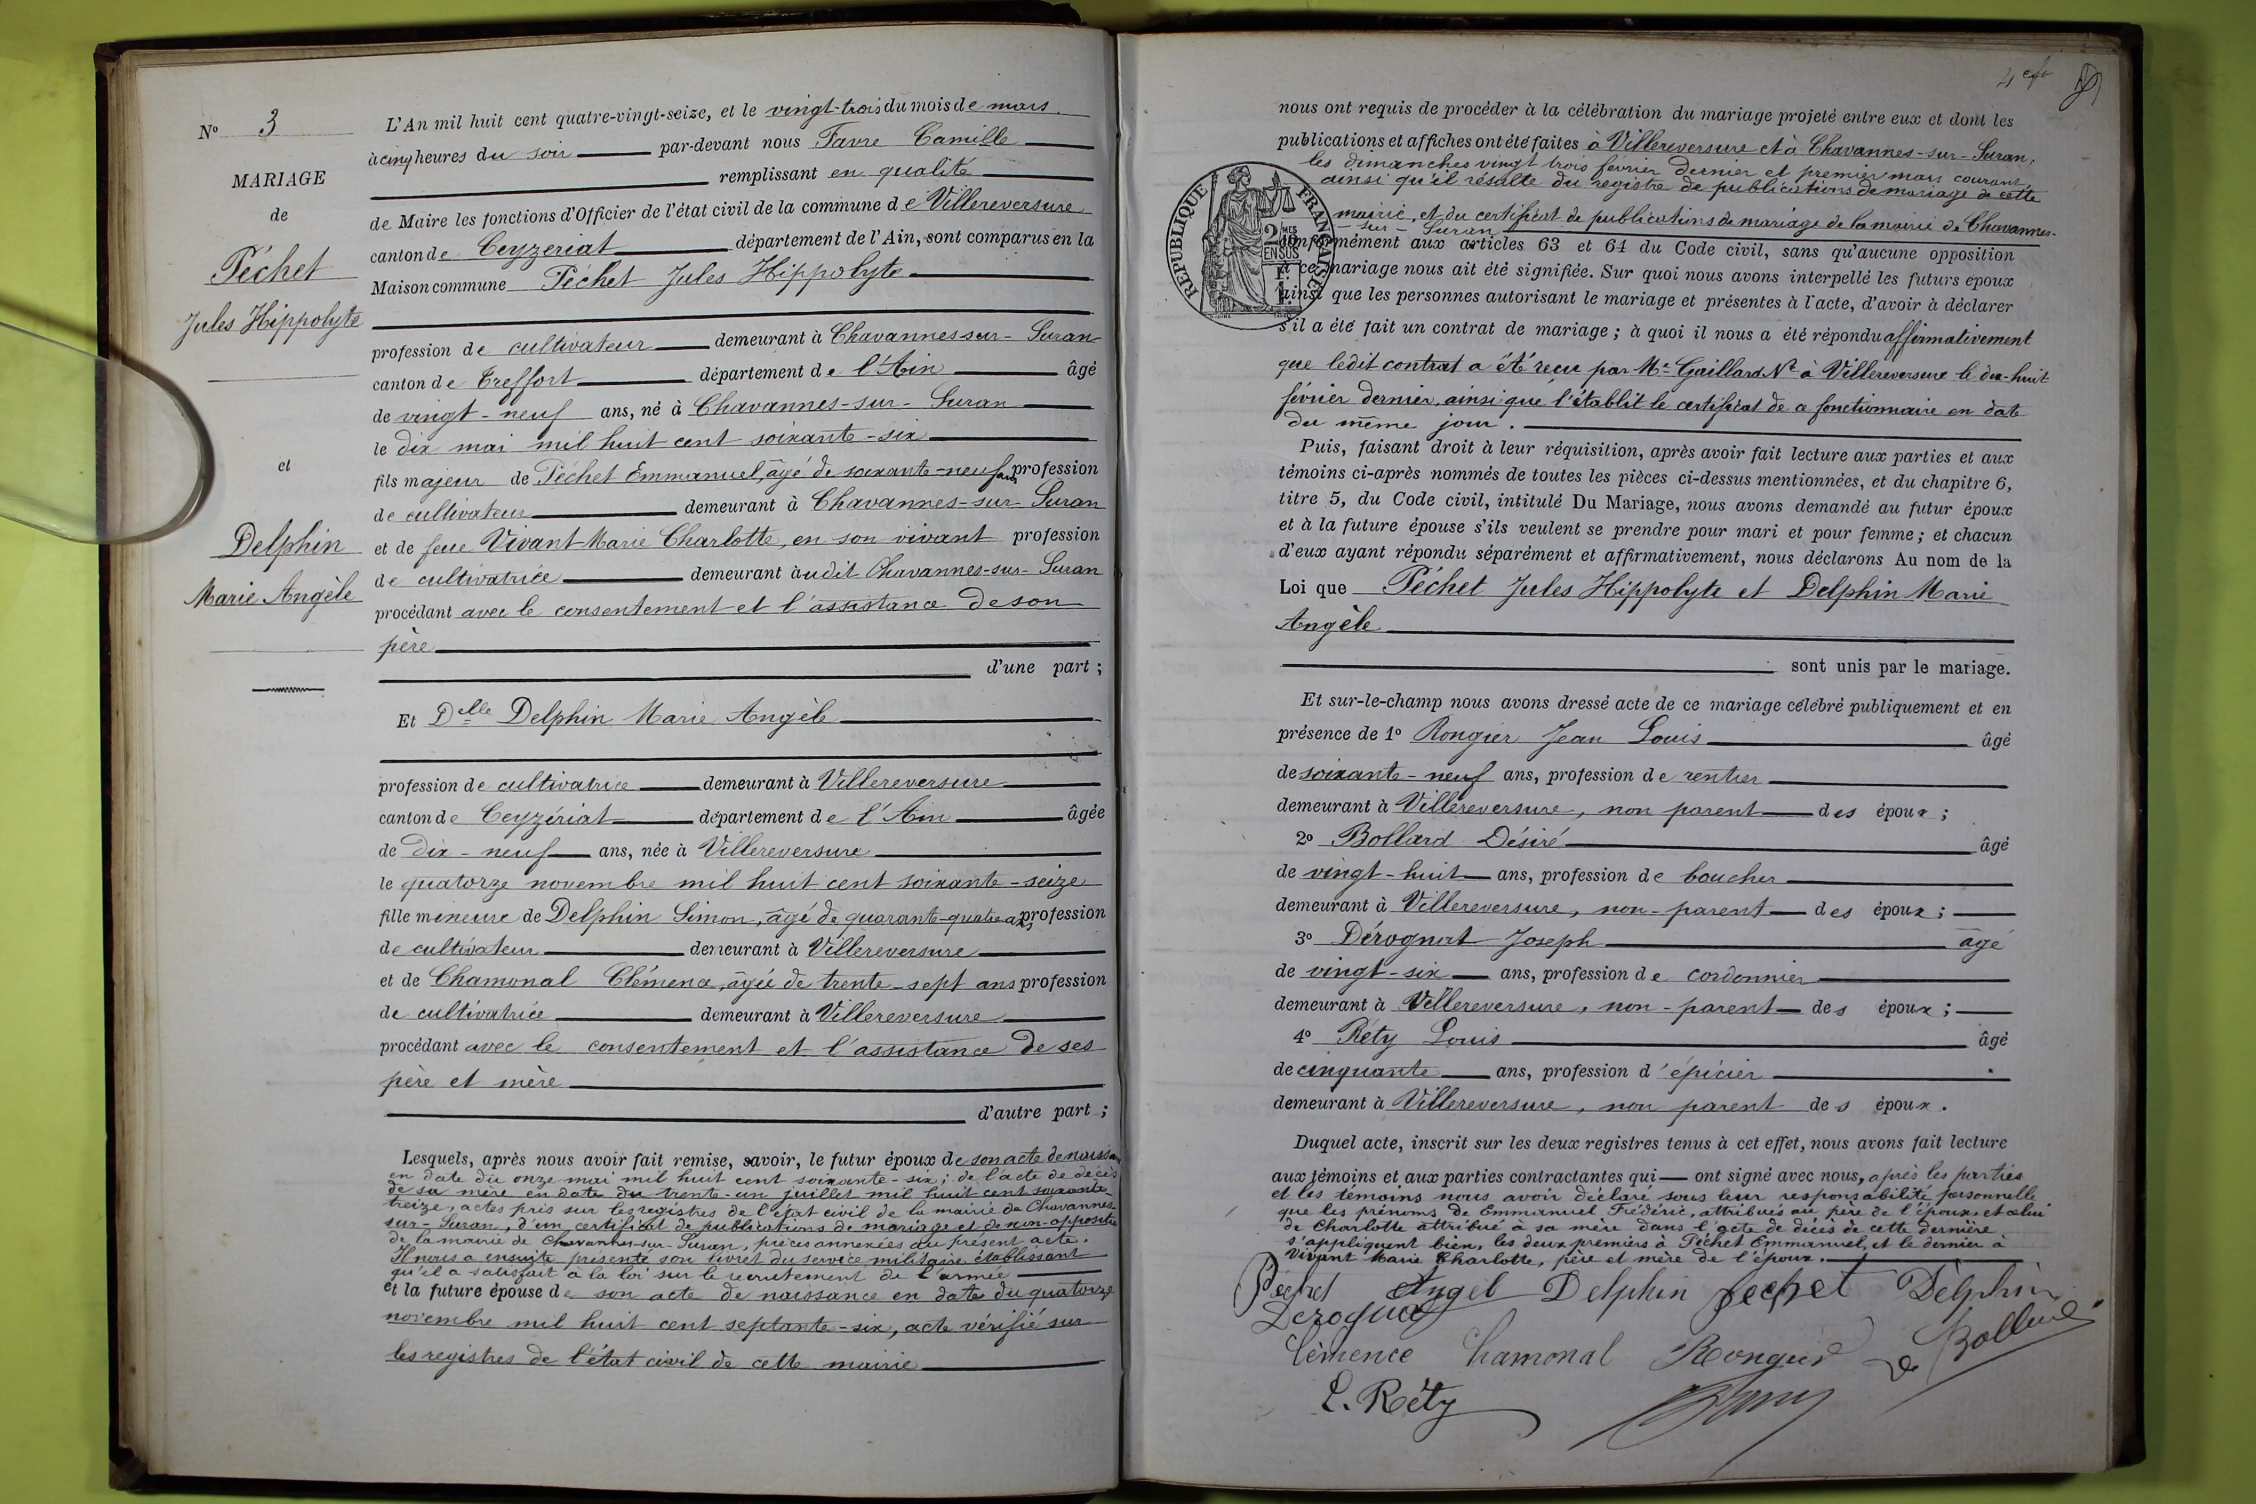 N° 3
MARIAGE
de
Péchet
Jules Hippolyte
et
Delphin
Marie Angèle
L'An mil huit cent quatre-vingt-seize, et le vingt-trois du mois de mars
à cinq heures du soir par-devant nous Favre Camille
remplissant en qualité
de Maire les fonctions d'Officier de l'état civil de la commune de Villereversure
canton de Ceyzeriat département de l'Ain, sont comparus en la
Maison commune Péchet Jules Hippolyte
profession de cultivateur demeurant à Chavannes-sur-Suran
canton de Treffort département de l'Ain âgé
de vingt-neuf ans, né à Chavannes-sur-Suran
le dix mai mil huit cent soixante-six
fils majeur de Péchet Emmanuel, âgé de soixante-neuf ans, profession
de cultivateur demeurant à Chavannes-sur-Suran
et de feue Vivant Marie Charlotte, en son vivant profession
de cultivatrice demeurant audit Chavannes-sur-Suran
procédant avec le consentement et l'assistance de son
père
d'une part ;
Et Delle Delphin Marie Angèle
profession de cultivatrice demeurant à Villereversure
canton de Ceyzériat département de l'Ain âgée
de dix-neuf ans, née à Villereversure
le quatorze novembre mil huit cent soixante-seize
fille mineure de Delphin Simon, âgé de quarante-quatre ans, profession
de cultivateur demeurant à Villereversure
et de Chamonal Clémence, âgée de trente-sept ans profession
de cultivatrice demeurant à Villereversure
procédant avec le consentement et l'assistance de ses
père et mère
d'autre part ;
Lesquels, après nous avoir fait remise, savoir, le futur époux de son acte de naissan
en date du onze mai mil huit cent soixante-six ; de l'acte de décès
de sa mère en date du trente-un juillet mil huit cent soixante-
treize, actes pris sur les registres de l'état civil de la mairie de Chavannes-
sur-Suran, d'un certificat de publications de mariage et de non-opposition
de la mairie de Chavannes-sur-Suran, pièces annexées au présent acte.
Il nous a ensuite présenté son livret du service militaire établissant
qu'il a satisfait à la loi sur le recrutement de l'armée
et la future épouse de son acte de naissance en date du quatorze
novembre mil huit cent septante-six, acte vérifié sur
les registres de l'état civil de cette mairie
nous ont requis de procéder à la célébration du mariage projeté entre eux et dont les
publications et affiches ont été faites à Villereversure et à Chavannes-sur-Suran,
les dimanches vingt trois février dernier et premier mars courant,
ainsi qu'il résulte du registre de publications de mariage de cette
mairie, et du certificat de publications de mariage de la mairie de Chavannes-
sur-Suran
conformément aux articles 63 et 64 du Code civil, sans qu'aucune opposition
à ce mariage nous ait été signifiée. Sur quoi nous avons interpellé les futurs époux
ainsi que les personnes autorisant le mariage et présentes à l'acte, d'avoir à déclarer
s'il a été fait un contrat de mariage ; à quoi il nous a été répondu affirmativement
que ledit contrat a été reçu par Me Gaillard Ne à Villereversure le dix-huit
février dernier, ainsi que l'établit le certificat de ce fonctionnaire en date
du même jour.
RÉPUBLIQUE FRANÇAISE
Puis, faisant droit à leur réquisition, après avoir fait lecture aux parties et aux
témoins ci-après nommés de toutes les pièces ci-dessus mentionnées, et du chapitre 6,
titre 5, du Code civil, intitulé Du Mariage, nous avons demandé au futur époux
et à la future épouse s'ils veulent se prendre pour mari et pour femme ; et chacun
d'eux ayant répondu séparément et affirmativement, nous déclarons Au nom de la
Loi que Péchet Jules Hippolyte et Delphin Marie
Angèle
sont unis par le mariage.
Et sur-le-champ nous avons dressé acte de ce mariage célébré publiquement et en
présence de 1° Rongier Jean Louis âgé
de soixante-neuf ans, profession de rentier
demeurant à Villereversure, non parent des époux ;
2° Bollard Désiré âgé
de vingt-huit ans, profession de boucher
demeurant à Villereversure, non-parent des époux ;
3° Dérognat Joseph âgé
de vingt-six ans, profession de cordonnier
demeurant à Villereversure, non-parent des époux ;
4° Réty Louis âgé
de cinquante ans, profession d'épicier
demeurant à Villereversure, non parent des époux.
Duquel acte, inscrit sur les deux registres tenus à cet effet, nous avons fait lecture
aux témoins et aux parties contractantes qui ont signé avec nous, après les parties
et les témoins nous avoir déclaré sous leur responsabilité personnelle
que les prénoms de Emmanuel Frédéric, attribués au père de l'époux, et celui
de Charlotte attribué à sa mère dans l'acte de décès de cette dernière
s'appliquent bien, les deux premiers à Péchet Emmanuel, et le dernier à
Vivant Marie Charlotte, père et mère de l'époux.
Péchet Angèl Delphin Pechet Delphin
Derognat
Clémence Chamonal Rongier
L. Réty